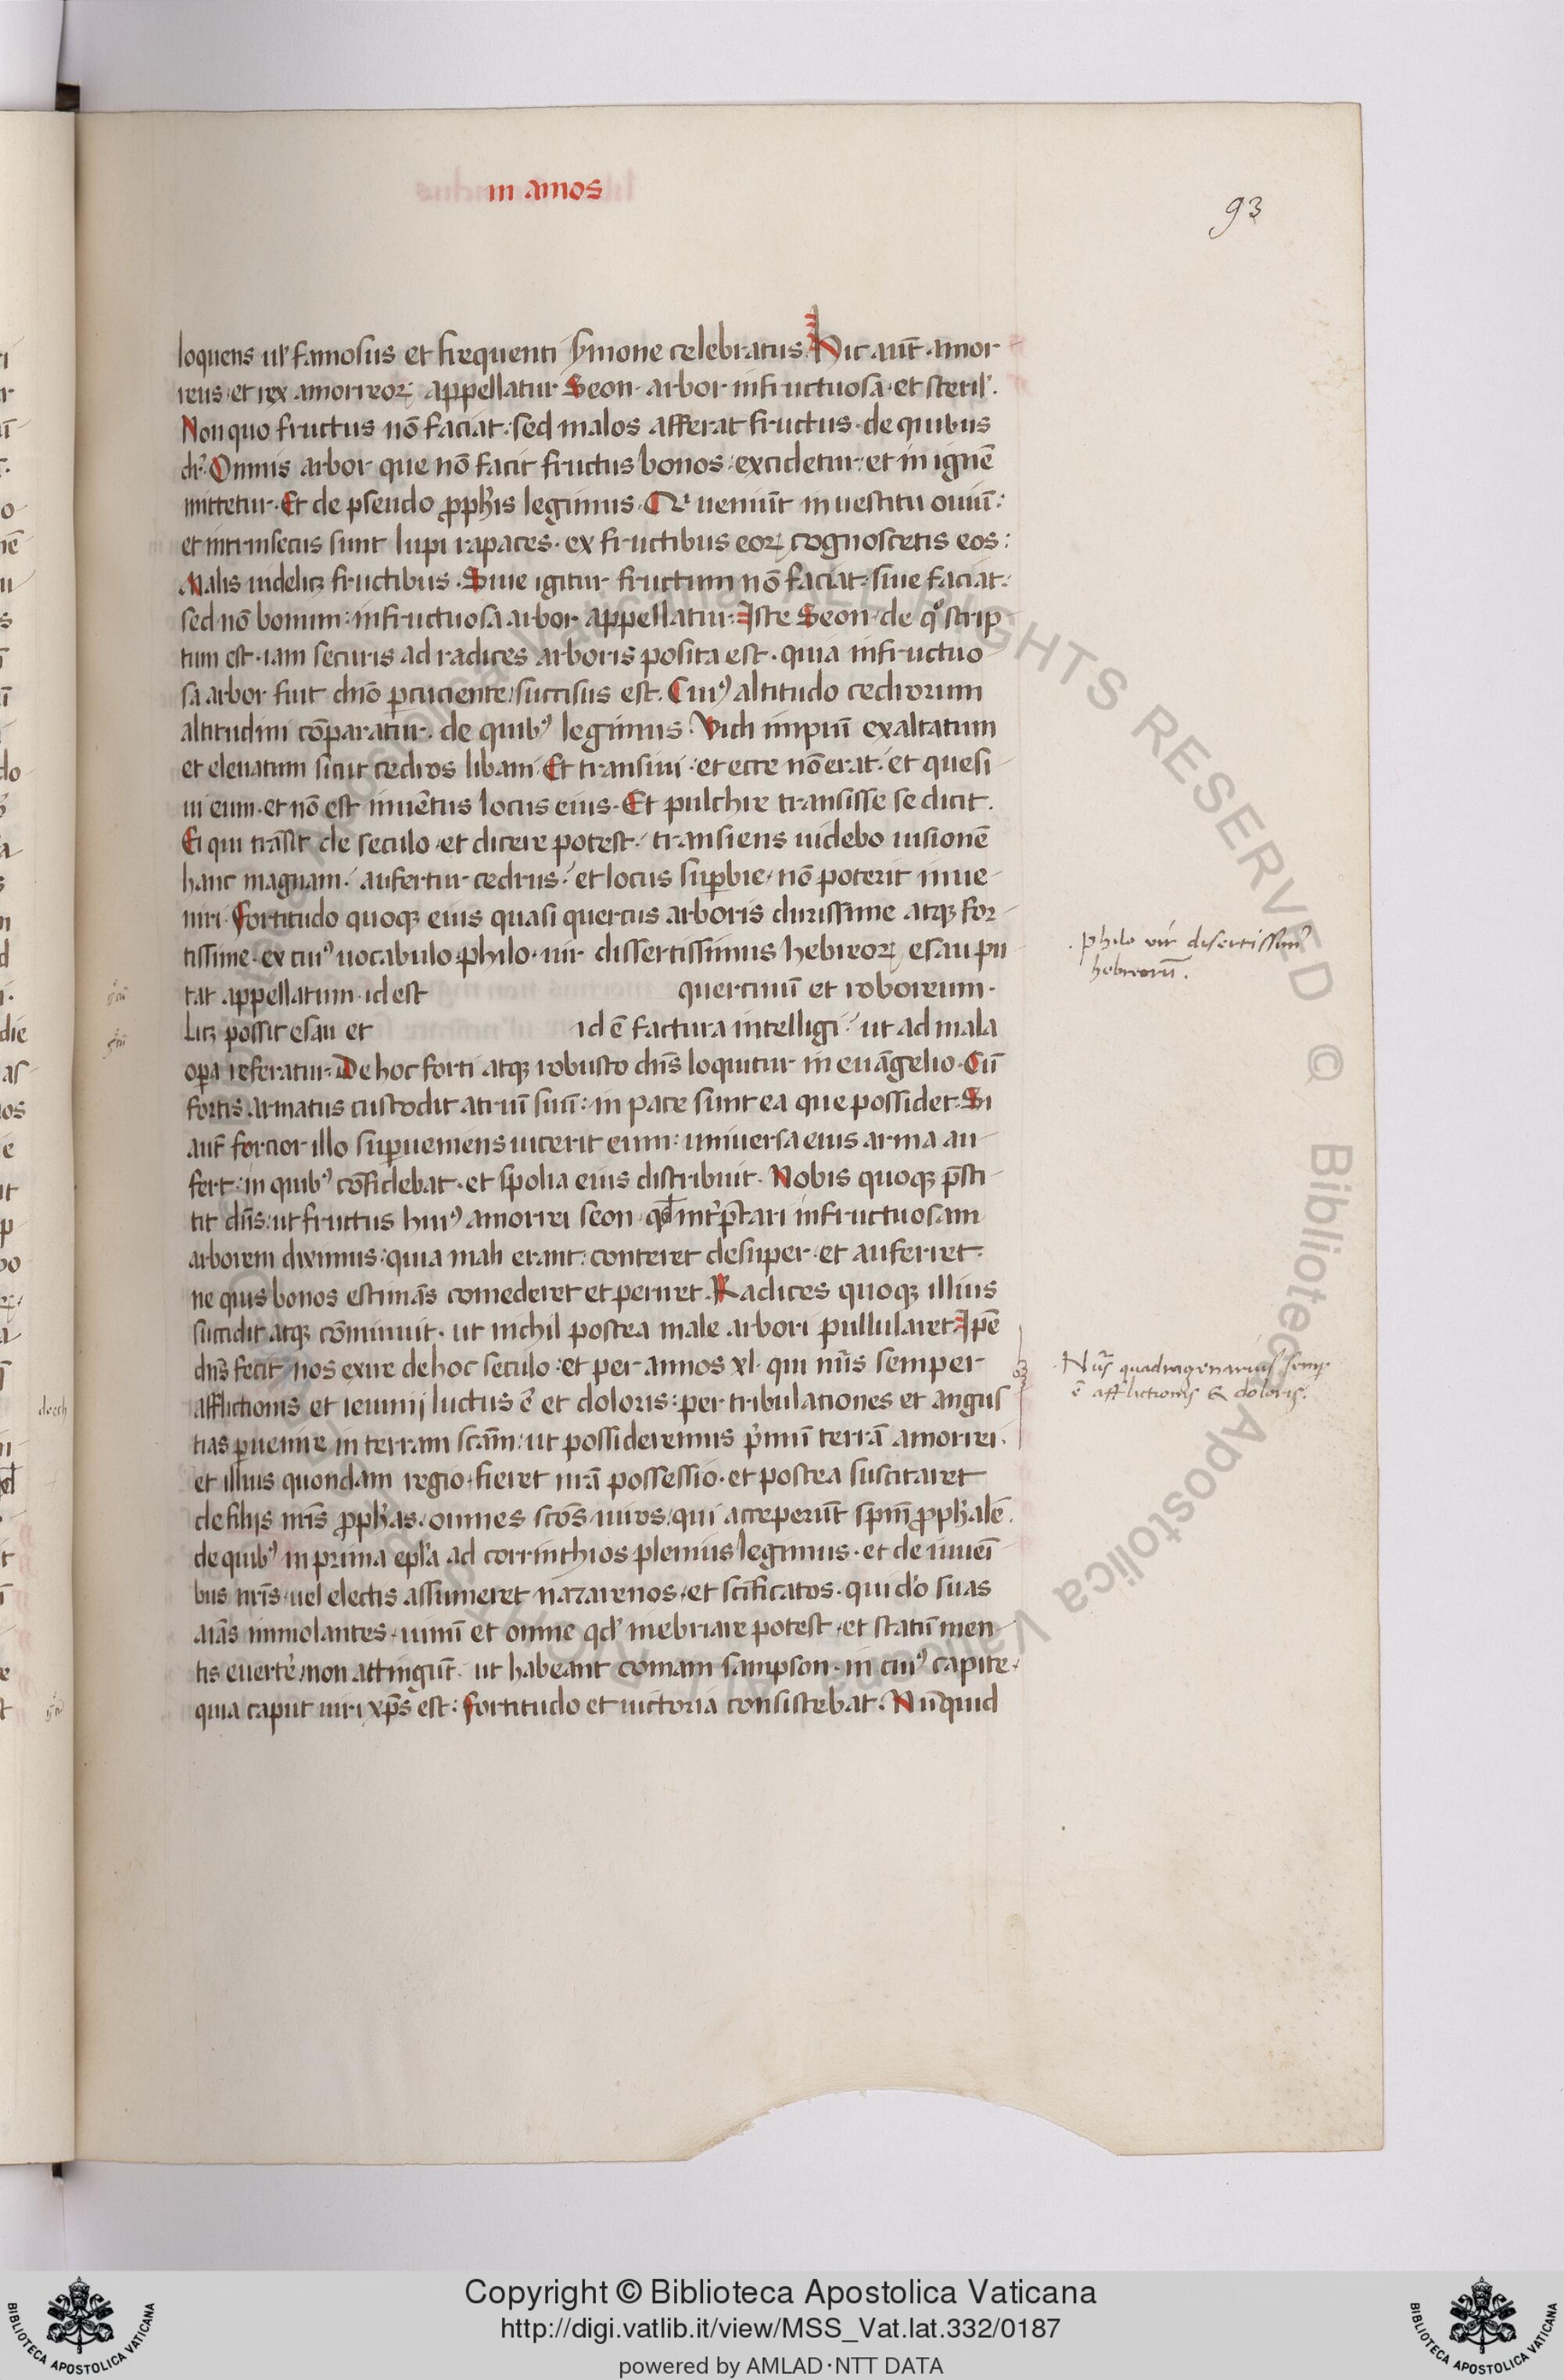 in amos
93
loquens ul' famosus et frequenti s̃mone celebratus. Hic aut̃ amor
reus et rex amorreoꝝ appellatur Seon arbor infructuosa et steril'.
Non quo fructus nō faciat. sed malos afferat fructus. de quibus
dr̃. Omnis arbor que nō facit fructus bonos excidetur et in ignē
mittetur. Et de pseudo ꝓph̃is legimus. Qr ueniūt in uestitu ouiū:
et intrinsecus sunt lupi rapaces. ex fructibus eoꝝ cognoscetis eos:
Malis uidelicꝫ fructibus. Siue igitur fructum nō faciat: siue faciat:
sed nō bonum: infructuosa arbor appellatur. Iste Seon de qͦ scrip
tum est. iam securis ad radices arboris posita est. quia infructuo
sa arbor fuit dn̄o ꝑcuciente succisus est. Cuiꝰ altitudo cedrorum
altitudini cōparatur. de quibꝰ legimus. Vidi impiū exaltatum
et eleuatum sicut cedros libani. Et transiui et ecce nō erat. et quesi
ui eum. et nō est inuētus locus eius. Et pulchre transisse se dicit.
Ei qui trāsit de seculo et dicere potest. transiens uidebo uisionē
hanc magnam. aufertur cedrus. et locus suꝑbie nō poterit inue
niri. Fortitudo quoqꝫ eius quasi quercus arboris durissime atqꝫ for
tissime. ex cuiꝰ uocabulo philo. uir dissertissimus hebreoꝝ esau pu
tat appellatum. id est quercinū et roboreum.
Licꝫ possit esau et id ē factura intelligi. ut ad mala
oꝑa referatur. De hoc forti atqꝫ robusto dn̄s loquitur in euāgelio. Cū
fortis armatus custodit atriū suū: in pace sunt ea que possidet. Si
aut̃ forcior illo suꝑueniens uicerit eum: uniuersa eius arma au
fert: in quibꝰ cōfidebat. et spolia eius distribuit. Nobis quoqꝫ p̄sti
tit dn̄s: ut fructus huiꝰ amorrei seon qd̄ int̃p̄tari infructuosam
arborem diximus: quia mali erant: conteret desuper et auferret:
ne quis bonos estimās comederet et periret. Radices quoqꝫ illius
succidit atqꝫ cōminuit. ut nichil postea male arbori pullularet. Ip̄e
dn̄s fecit nos exire de hoc seculo: et per annos xl. qui nūs semper
afflictionis et ieiunij luctus ē et doloris: per tribulationes et angus
tias ꝑuenire in terram scām: ut possideremus p̄mū terrā amorrei.
et illius quondam regio fieret nr̄a possessio. et postea suscitaret
de filijs nr̄is ꝓph̃as. omnes scōs uiros. qui acceperūt spm̄ ꝓph̃alē.
de quibꝰ in prima epl'a ad corrinthios plenius legimus. et de iuueī
bus nr̄is uel electis assumeret nazarenos. et scīficatos. qui dō suas
aīas immolantes. uinū et omne qd' inebriare potest et statū men
tis euertẽ non attingūt. ut habeant comam sampson. in cuiꝰ capite.
quia caput uiri xp̄s est: fortitudo et uictoria consistebat. Nūquid
philo vir disertissimꝰ
hebreorū.
Nūs quadragenarius semp
ē afflictionis & doloris.
Copyright © Biblioteca Apostolica Vaticana
http://digi.vatlib.it/view/MSS_Vat.lat.332/0187
powered by AMLAD·NTT DATA
BIBLIOTECA APOSTOLICA VATICANA
BIBLIOTECA APOSTOLICA VATICANA